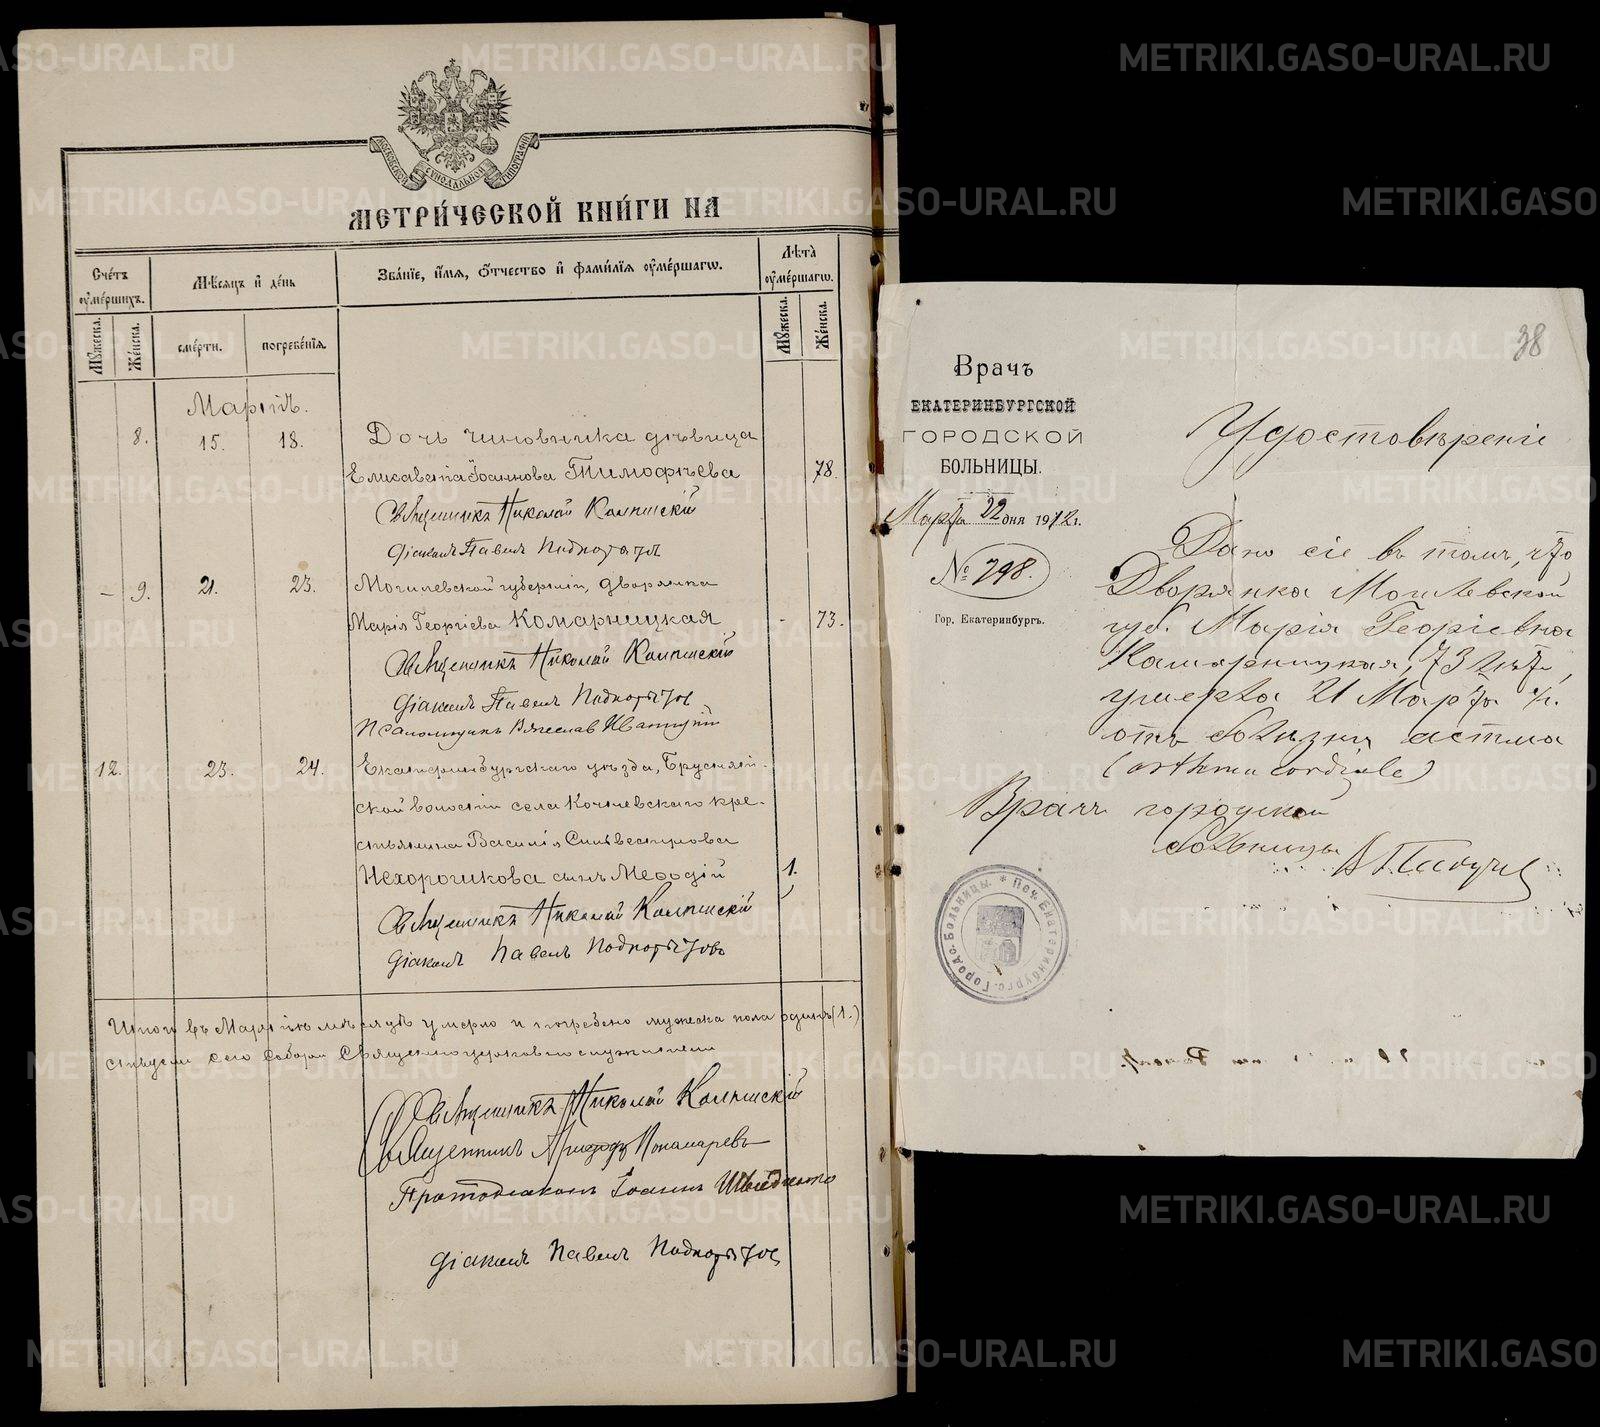 МОСКОВСКОЙ СУНОДАЛЬНОЙ ТИПОГРАФІИ
МЕТРИ́ЧЕСКОЙ КНИ́ГИ НА
Сче́тъ оуме́ршихъ.
Мѣ́сяцъ и де́нь
Зва́нїе, и́мя, о́тчество и фами́лїя оуме́ршагѡ.
Лѣта̀ оуме́ршагѡ.
Мꙋ́жеска.
Же́нска.
сме́рти.
погребе́нїя.
Мꙋ́жеска.
Же́нска.
Мартъ.
8. 15. 18. Дочь чиновника дѣвица
Елисавета Іоаннова Тимофѣева 78.
Священникъ Николай
Діаконъ Павелъ
- 9. 21. 23. Могилевской губерніи, дворянка
Марія Георгіева Комарницкая - 73.
Священникъ Николай
Діаконъ Павелъ
Псаломщикъ Вячеслав
12. 23. 24. Екатеринбургскаго уѣзда,
ской волости села Кочневскаго кре-
стьянина Василія Силвестрова
Нехорошкова сынъ Меѳодій 1.
Священникъ Николай
Діаконъ Павелъ
Итого въ Мартѣ мѣсяцѣ умерло и погребено мужеска пола одинъ (1.)
сего Собора Священноцерковнослужители
Священникъ Николай
Священникъ Пономаревъ
Протодіаконъ Іоаннъ
Діаконъ Павелъ
38
Врачъ
ЕКАТЕРИНБУРГСКОЙ
ГОРОДСКОЙ
БОЛЬНИЦЫ.
Марта 22 дня 1912 г.
№ 798.
Гор. Екатеринбургъ.
Удостовѣреніе
Дано сіе въ томъ, что
Дворянка Могилевской
губ. Марія Георгіевна
Комарницкая, 73 лѣтъ,
умерла 21 Марта с/г.
отъ болѣзни астма
(asthma cordiale)
Врачъ городской
больницы
METRIKI.GASO-URAL.RU